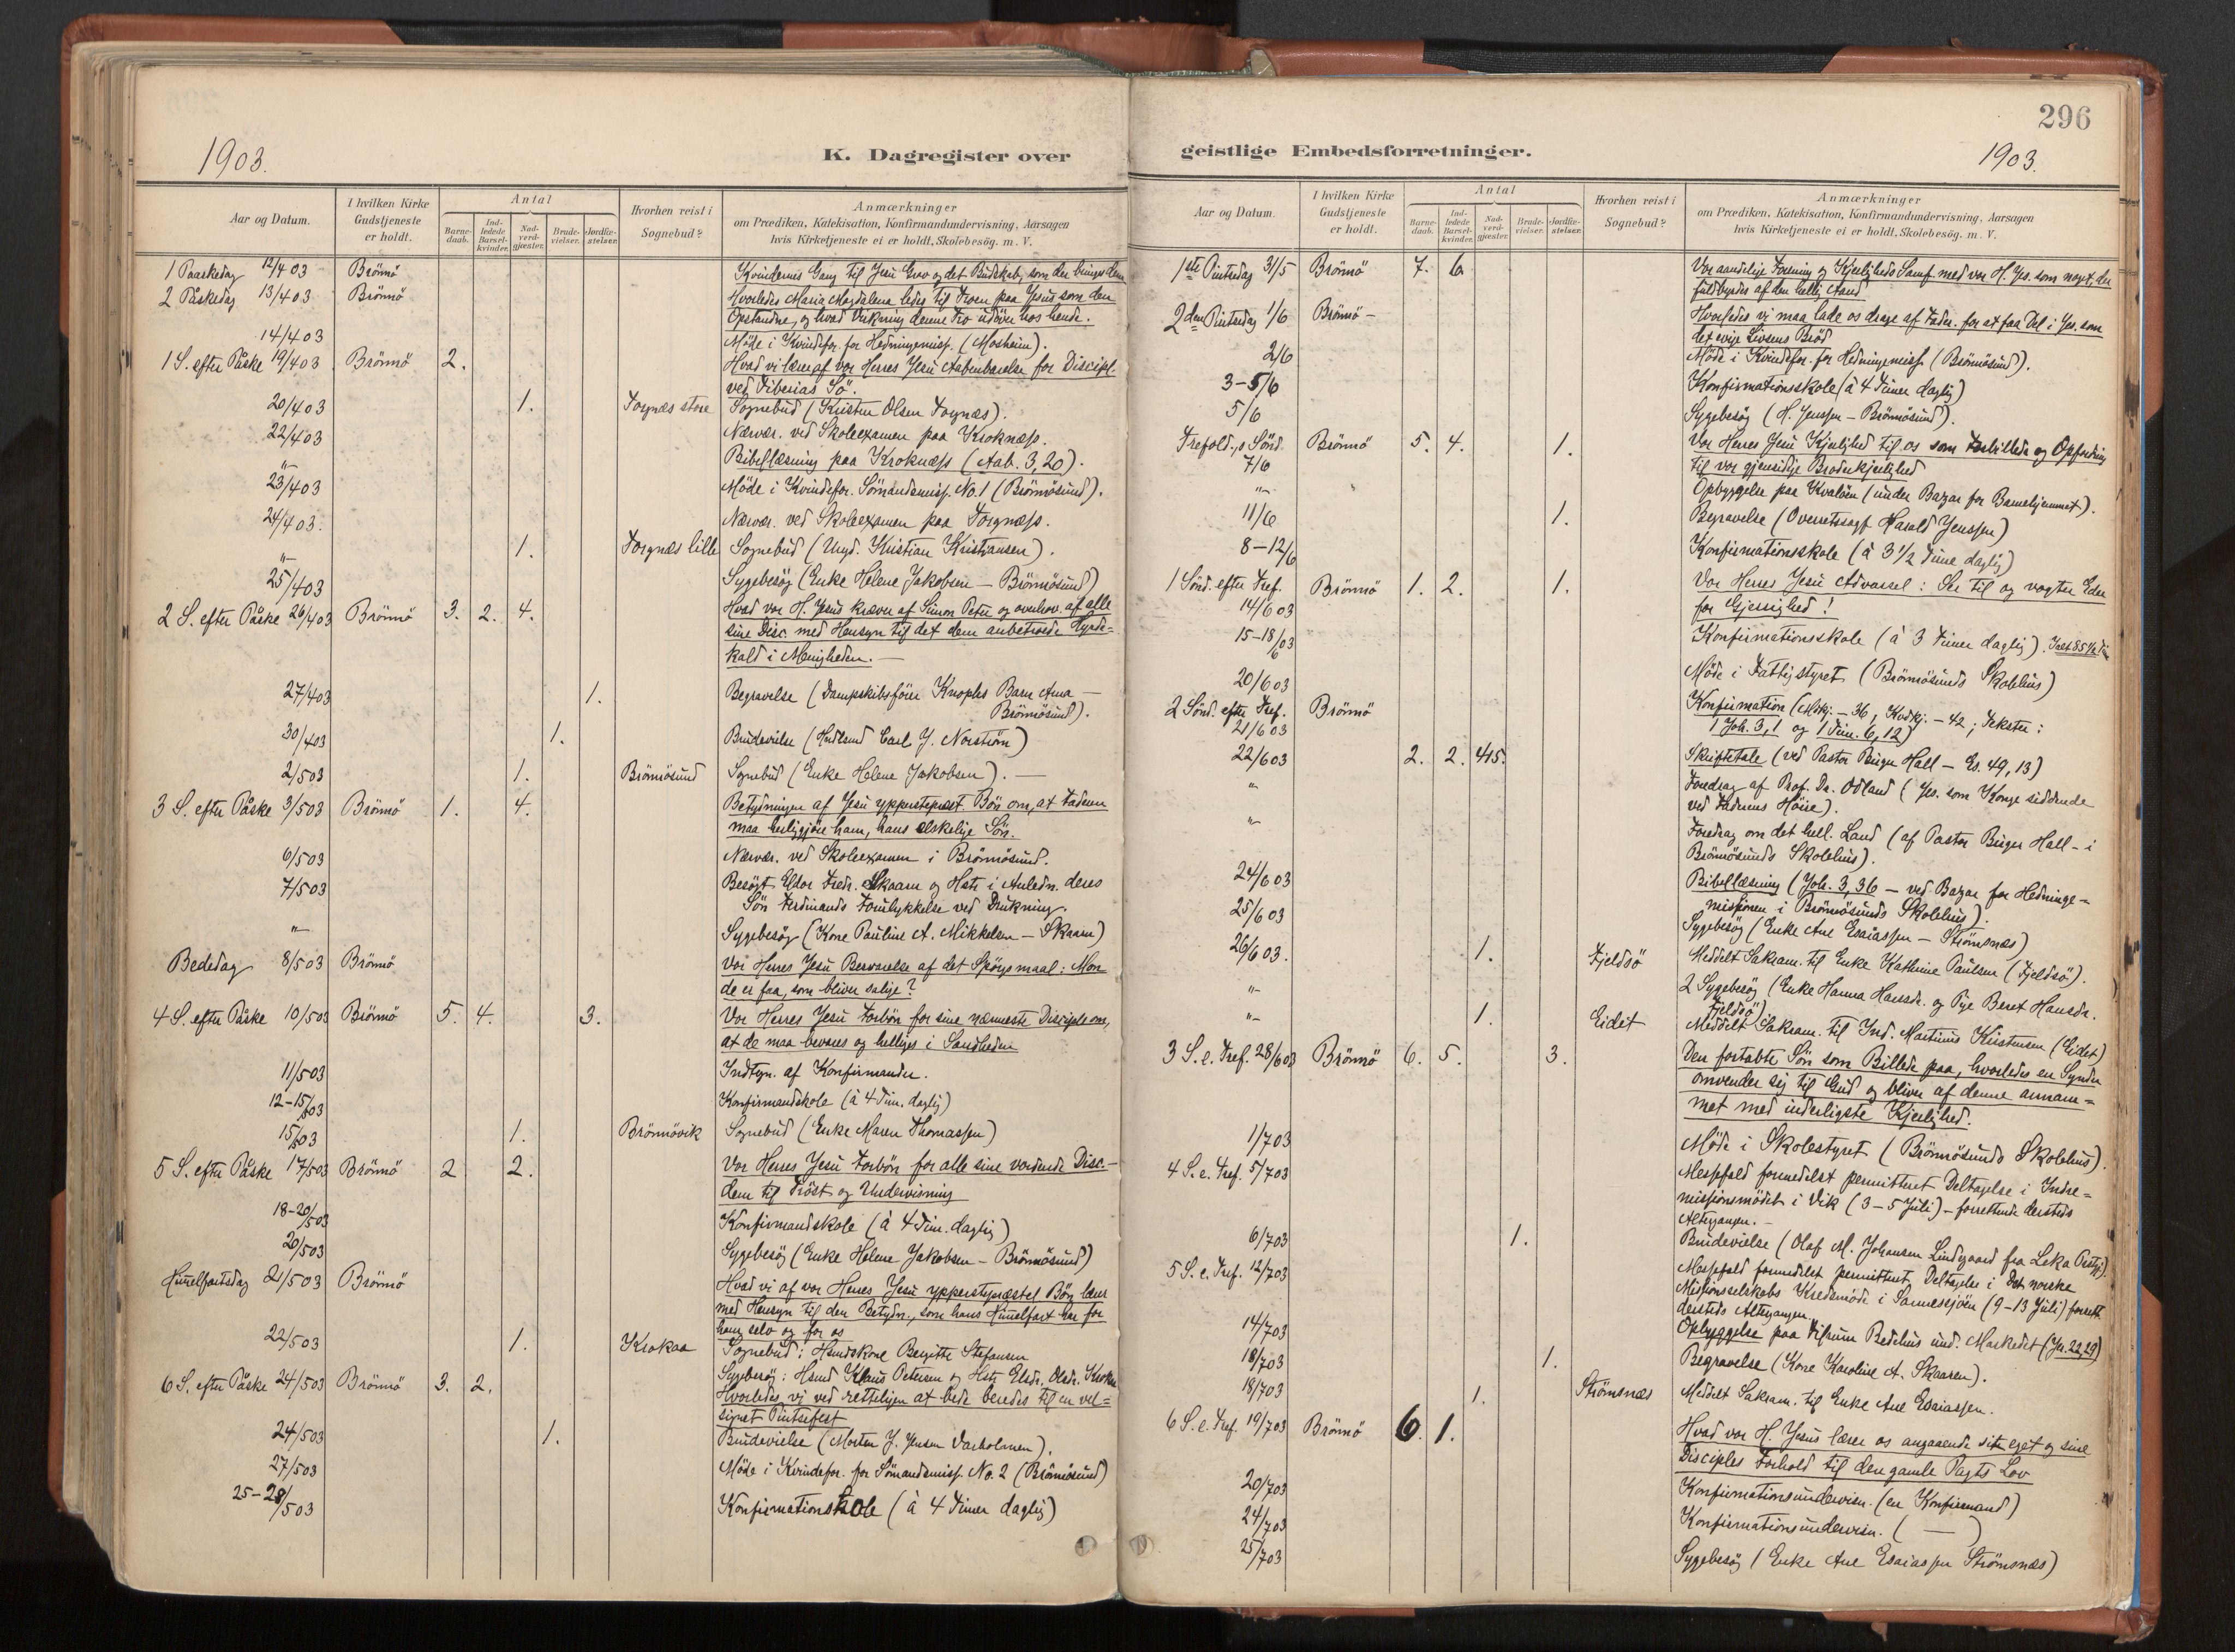 1903.
K. Dagregister over
Aar og Datum.
I hvilken Kirke Gudstjeneste er holdt.
Antal
Barne-daab.
Ind-ledede Barsel-kvinder.
Nad-verd-gjæster.
Brude-vielser.
Jordfæ-stelser.
Hvorhen reist i Sognebud?
Anmærkninger
om Prædiken, Katekisation, Konfirmandundervisning, Aarsagen
hvis Kirketjeneste ei er holdt, Skolebesög. m. V.
1 Paaskedag 12/4 03 Brönnö Kvindernes Gang til Jesu Grav og det Budskab, som der bringes dem
2 Påskedag 13/4 03 Brönnö Hvorledes Maria Magdalena ledes til Troen paa Jesus som den
Opstandne, og hvad Virkning denne Tro udöver hos hende.
14/4 03 Möde i Kvindefor. for Hedningemiss. (Mosheim).
1 S. efter Påske 19/4 03 Brönnö 2. Hvad vi lærer af vor Herres Jesu Aabenbarelse for Discipl.
ved Tiberias Sö.
20/4 03 1. Torgnæs store Sognebud (Kristen Olsen Torgnæs).
22/4 03 Nærvær. ved Skoleexamen paa Kroknæss.
"- Bibellæsning paa Kroknæss (Aab. 3,20).
23/4 03 Möde i Kvindefor. Sömandsmiss. No. 1 (Brönnösund).
24/4 03. Nærvær. ved Skoleexamen paa Torgnæss.
"- 1. Torgnæs lille Sognebud (Ungd. Kristian Kristiansen).
25/4 03 Sygebesög (Enke Helene Jakobsen - Brönnösund)
2 S. efter Påske 26/4 03 Brönnö 3. 2. 4. Hvad vor H. Jesus kræver af Simon Peter og overhov. af alle
sine Disc. med Hensyn til det dem anbetroede Hyrde=
kald i Menigheden. -
27/4 03 1. Begravelse (Dampskibsförer Knophs Barn Anna -
Brönnösund).
30/4 03 1. Brudevielse (Hndlsmd Carl J. Norström)
2/5 03 1. Brönnösund Sognebud (Enke Helene Jakobsen). -
3 S. efter Påske 3/5 03 Brönnö 1. 4. Betydningen af Jesu ypperstepræst. Bön om, at Faderen
maa herliggjöre ham, hans elskelige Sön.
6/5 03 Nærvær. ved Skoleexamen i Brönnösund.
7/5 03 Besögt Eldor Fredr. Skaarn og Hstr i Anledn. deres
Sön Ferdinands Forulykkelse ved Drukning.
"- Sygebesög (Kone Pauline A. Mikkelsen - Skaarn)
Bededag 8/5 03 Brönnö Vor Herres Jesu Besvarelse af det Spörgsmaal: Mon
de er faa, som bliver salige?
4 S. efter Påske 10/5 03 Brönnö 5. 4. 3. Vor Herres Jesu Forbön for sine nærmeste Disciple om,
at de maa bevares og helliges i Sandheden
11/5 03 Indtegn. af Konfirmander.
12-15/5 03 Konfirmandskole (à 4 Tim. daglig)
15/5 03 1. Brönnövik Sognebud (Enke Maren Thomassen)
5 S. efter Påske 17/5 03 Brönnö 2 2. Vor Herres Jesu Forbön for alle sine vordende Disc.-
dem til Tröst og Undervisning
18-20/5 03 Konfirmandskole (à 4 Tim. daglig)
20/5 03 Sygebesög (Enke Helene Jakobsen - Brönnösund)
Himmelfartsdag 21/5 03 Brönnö Hvad vi af vor Herres Jesu ypperstepræstel. Bön lærer
med Hensyn til den Betydn., som hans Himmelfart har for
ham selv og for os
22/5 03 1. Krokaa Sognebud: Hsmdskone Bergitte Stefansen
Sygebesög: Hsmd Klaus Petersen og Hstr Elsdr. Olsdr. Kroken
6 S. efter Påske 24/5 03 Brönnö 3. 2. Hvorledes vi ved rettelig en at bede beredes til en vel=
signet Pintsefest
24/5 03 1. Brudevielse (Morten J. Jensen Varholmen).
27/5 03 Möde i Kvindefor. for Sömandsmiss. No. 2 (Brönnösund)
25-28/5 03 Konfirmationskole (à 4 Timer daglig)
296
geistlige Embedsforretninger.
1903.
Aar og Datum.
I hvilken Kirke Gudstjeneste er holdt.
Antal
Barne-daab.
Ind-ledede Barsel-kvinder.
Nad-verd-gjæster.
Brude-vielser.
Jordfæ-stelser.
Hvorhen reist i Sognebud?
Anmærkninger
om Prædiken, Katekisation, Konfirmandundervisning, Aarsagen
hvis Kirketjeneste ei er holdt, Skolebesög. m. V.
1ste Pintsedag 31/5 Brönnö 7. 6 Vor aandelige Forening og Kjærligheds Samf. med vor H. Jes. som noget, der
fuldbyrdes af den hellig Aand
2den Pintsedag 1/6 Brönnö - Hvorledes vi maa lade os drage af Fader. for at faa Del i Jes. som
det evige Livsens Bröd
2/6 Möde i Kvindefor. for Hedningemiss. (Brönnösund).
3-5/6 Konfirmationsskole (à 4 Timer daglig)
5/6 Sygebesög (H. Jenssen - Brönnösund).
Trefold.s Sönd. 7/6 Brönnö 5. 4. 1. Vor Herres Jesu Kjærlighed til os som Forbillede og Opfordring
til vor gjensidige Broderkjærlighed
"- Opbyggelse paa Kvalöen (under Bazar for Barnehjemmet).
11/6 1. Begravelse (Overretssagf. Harald Jenssen)
8-12/6 Konfirmationsskole (à 3 1/2 Time daglig)
1 Sönd. efter Tref. 14/6 03 Brönnö 1. 2. 1. Vor Herres Jesu Advarsel: Se til og vogter Eder
for Gjerrighed!
15-18/6 03 Konfirmationsskole (à 3 Timer daglig). Ialt 85 1/2 Tim
20/6 03 Möde i Fattigstyret (Brönnösunds Skolehus)
2 Sönd. efter Tref. 21/6 03 Brönnö Konfirmation (Mskj. - 36, Kvdkj. - 42; Tekster:
1 Joh. 3,1 og 1 Tim. 6,12)
22/6 03 2. 2. 415. Skriftetale (ved Pastor Birger Hall - Es. 49, 13)
"- Foredrag af Prof. Dr. Odland (Jes. som Konge siddende
ved Faderens Höire).
"- Foredrag om det hell. Land (af Pastor Birger Hall - i
Brönnösunds Skolehus).
24/6 03 Bibellæsning (Joh. 3, 36 - ved Bazar for Hedninge=
missionen i Brönnösunds Skolehus).
25/6 03 Sygebesög (Enke Ane Esaiassen - Strömsnæs)
26/6 03. 1. Fjeldsö Meddelt Sakram. til Enke Kathrine Paulsen (Fjeldsö).
"- 2 Sygebesög (Enke Hanna Hansdr. og Pige Beret Hansdr.
Fjeldsö)
"- 1. Eidet Meddelt Sakram. til Ind. Martinus Kristensen (Eidet)
3 S. e. Tref. 28/6 03 Brönnö 6. 5. 3. Den fortabte Sön som Billede paa, hvorledes en Synder
omvender sig til Gud og bliver af denne annam=
met med inderligste Kjærlighed.
1/7 03 Möde i Skolestyret (Brönnösunds Skolehus).
4 S. e. Tref. 5/7 03 Messefald formedelst permitteret Deltagelse i Indre=
missionsmödet i Vik (3-5 Juli) - forrettende dersteds
Altergangen. -
6/7 03 1. Brudevielse (Olaf M. Johansen Lindgaard fra Leka Prstgj)
5 S. e. Tref. 12/7 03 Messefald formedelst permitteret Deltagelse i Det norske
Missionsselskabs Kredsmöde i Sannessjöen (9-13 Juli) forrett.
dersteds Altergangen.
14/7 03 Opbyggelse paa Tilrum Bedehus und. Markedet (Jer. 22,29)
18/7 03 1. Begravelse (Kone Karoline A. Skaaren).
18/7 03 1. Strömsnæs Meddelt Sakram. til Enke Ane Esaiassen.
6 S. e. Tref. 19/7 03 Brönnö 6. 1. Hvad vor H. Jesus lærer os angaaende sit eget og sine
Disciples Forhold til den gamle Pagts Lov
20/7 03 Konfirmationsundervisn. (en Konfirmand)
24/7 03 Konfirmationsundervisn. ( - )
25/7 03 Sygebesög (Enke Ane Esaiassen Strömsnæs)